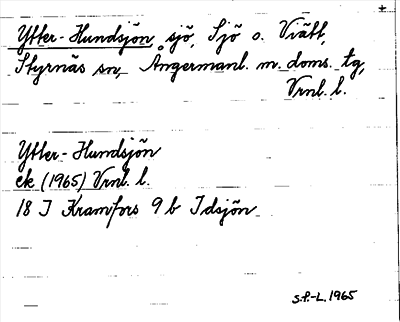 Ytter-Hundsjön, sjö, Sjö o. Viätt,
Styrnäs sn, Ångermanl. m. doms. tg,
Vrnl. l.
Ytter-Hundsjön
ek (1965) Vrnl. l.
18 I Kramfors 9 b Idsjön
S.P.-L. 1965